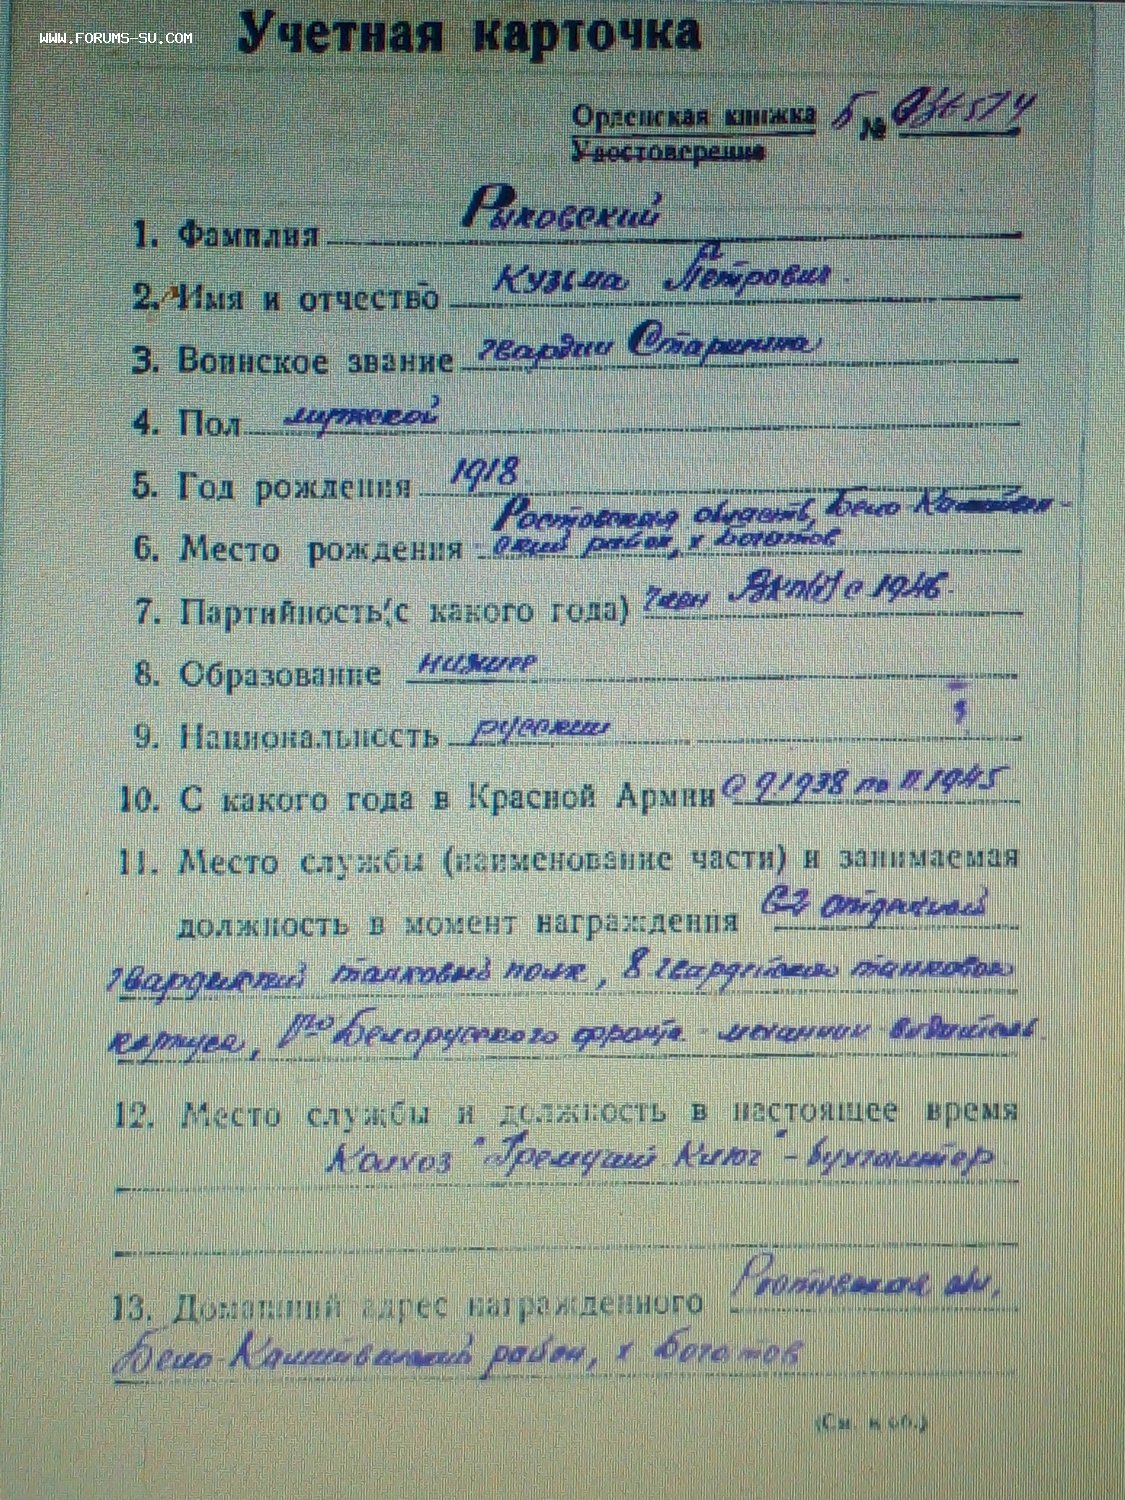 www.forums-su.com
Учетная карточка
Орденская книжка Б № 036574
Удостоверение
1. Фамилия Рыковский
2. Имя и отчество Кузьма Петрович
3. Воинское звание гвардии Старшина
4. Пол мужской
5. Год рождения 1918
Ростовская область, Бело-Калитвен-
6. Место рождения ский район, х Богатов
7. Партийность (с какого года) член ВКП(б) с 1946.
8. Образование низшее
9. Национальность русский
10. С какого года в Красной Армии С 9.1938 по 1945
11. Место службы (наименование части) и занимаемая
должность в момент награждения отдельный
гвардейский танковый полк, 8 гвардейский танковый
корпус, 1го Белорусского фронта - механик-водитель.
12. Место службы и должность в настоящее время
Колхоз "Гремучий Ключ" - бухгалтер
13. Домашний адрес награжденного Ростовская обл,
Бело-Калитвенский район, х Богатов
(См. на об.)